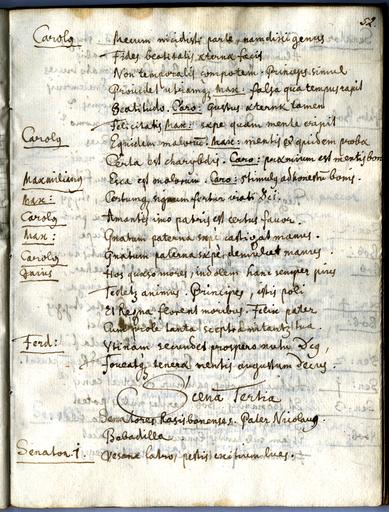 52
Carolꝰ Mecum incidisti parte, nam dixi genus
Fides beatitatis æterna facis
Non temporalis compotem. Princeps simul
utramqꝫ Max: falsa qua tempus rapit
Beatitudo. Caro: gustus æternæ tamen
Felicitatis Max: sæpe quam mentis eripit
Carolꝰ Equidem malorum: Max: mentis equidem proba
Porta est charybdis. Caro: præmium est mentis bonæ
Maxmilianꝰ Esca est malorum. Caro: stimulus ad honestum bonis.
Max: Fortunæ signum fertur irati Dei.
Carolꝰ Amantis imo patris est certus favor.
Max: Gnatum paterna sæpe castigat manus.
Carolꝰ Gnatum paterna sæpe demulcet manus.
Hos quæso mores, indolem hanc semper pius
animus. Principes, istis poli
Et Regna florent moribus. felix pater
tanta sceptra nitantur tua.
Ferd: Utinam secundet prospero nutu Deus,
Foveatqꝫ tenera mentis augustum decus.
Scena Tertia
Senatores Ratisbonenses. Pater Nicolaus
Bobadilla
Senator. 1. Vesane latro, pestis exitium lues.